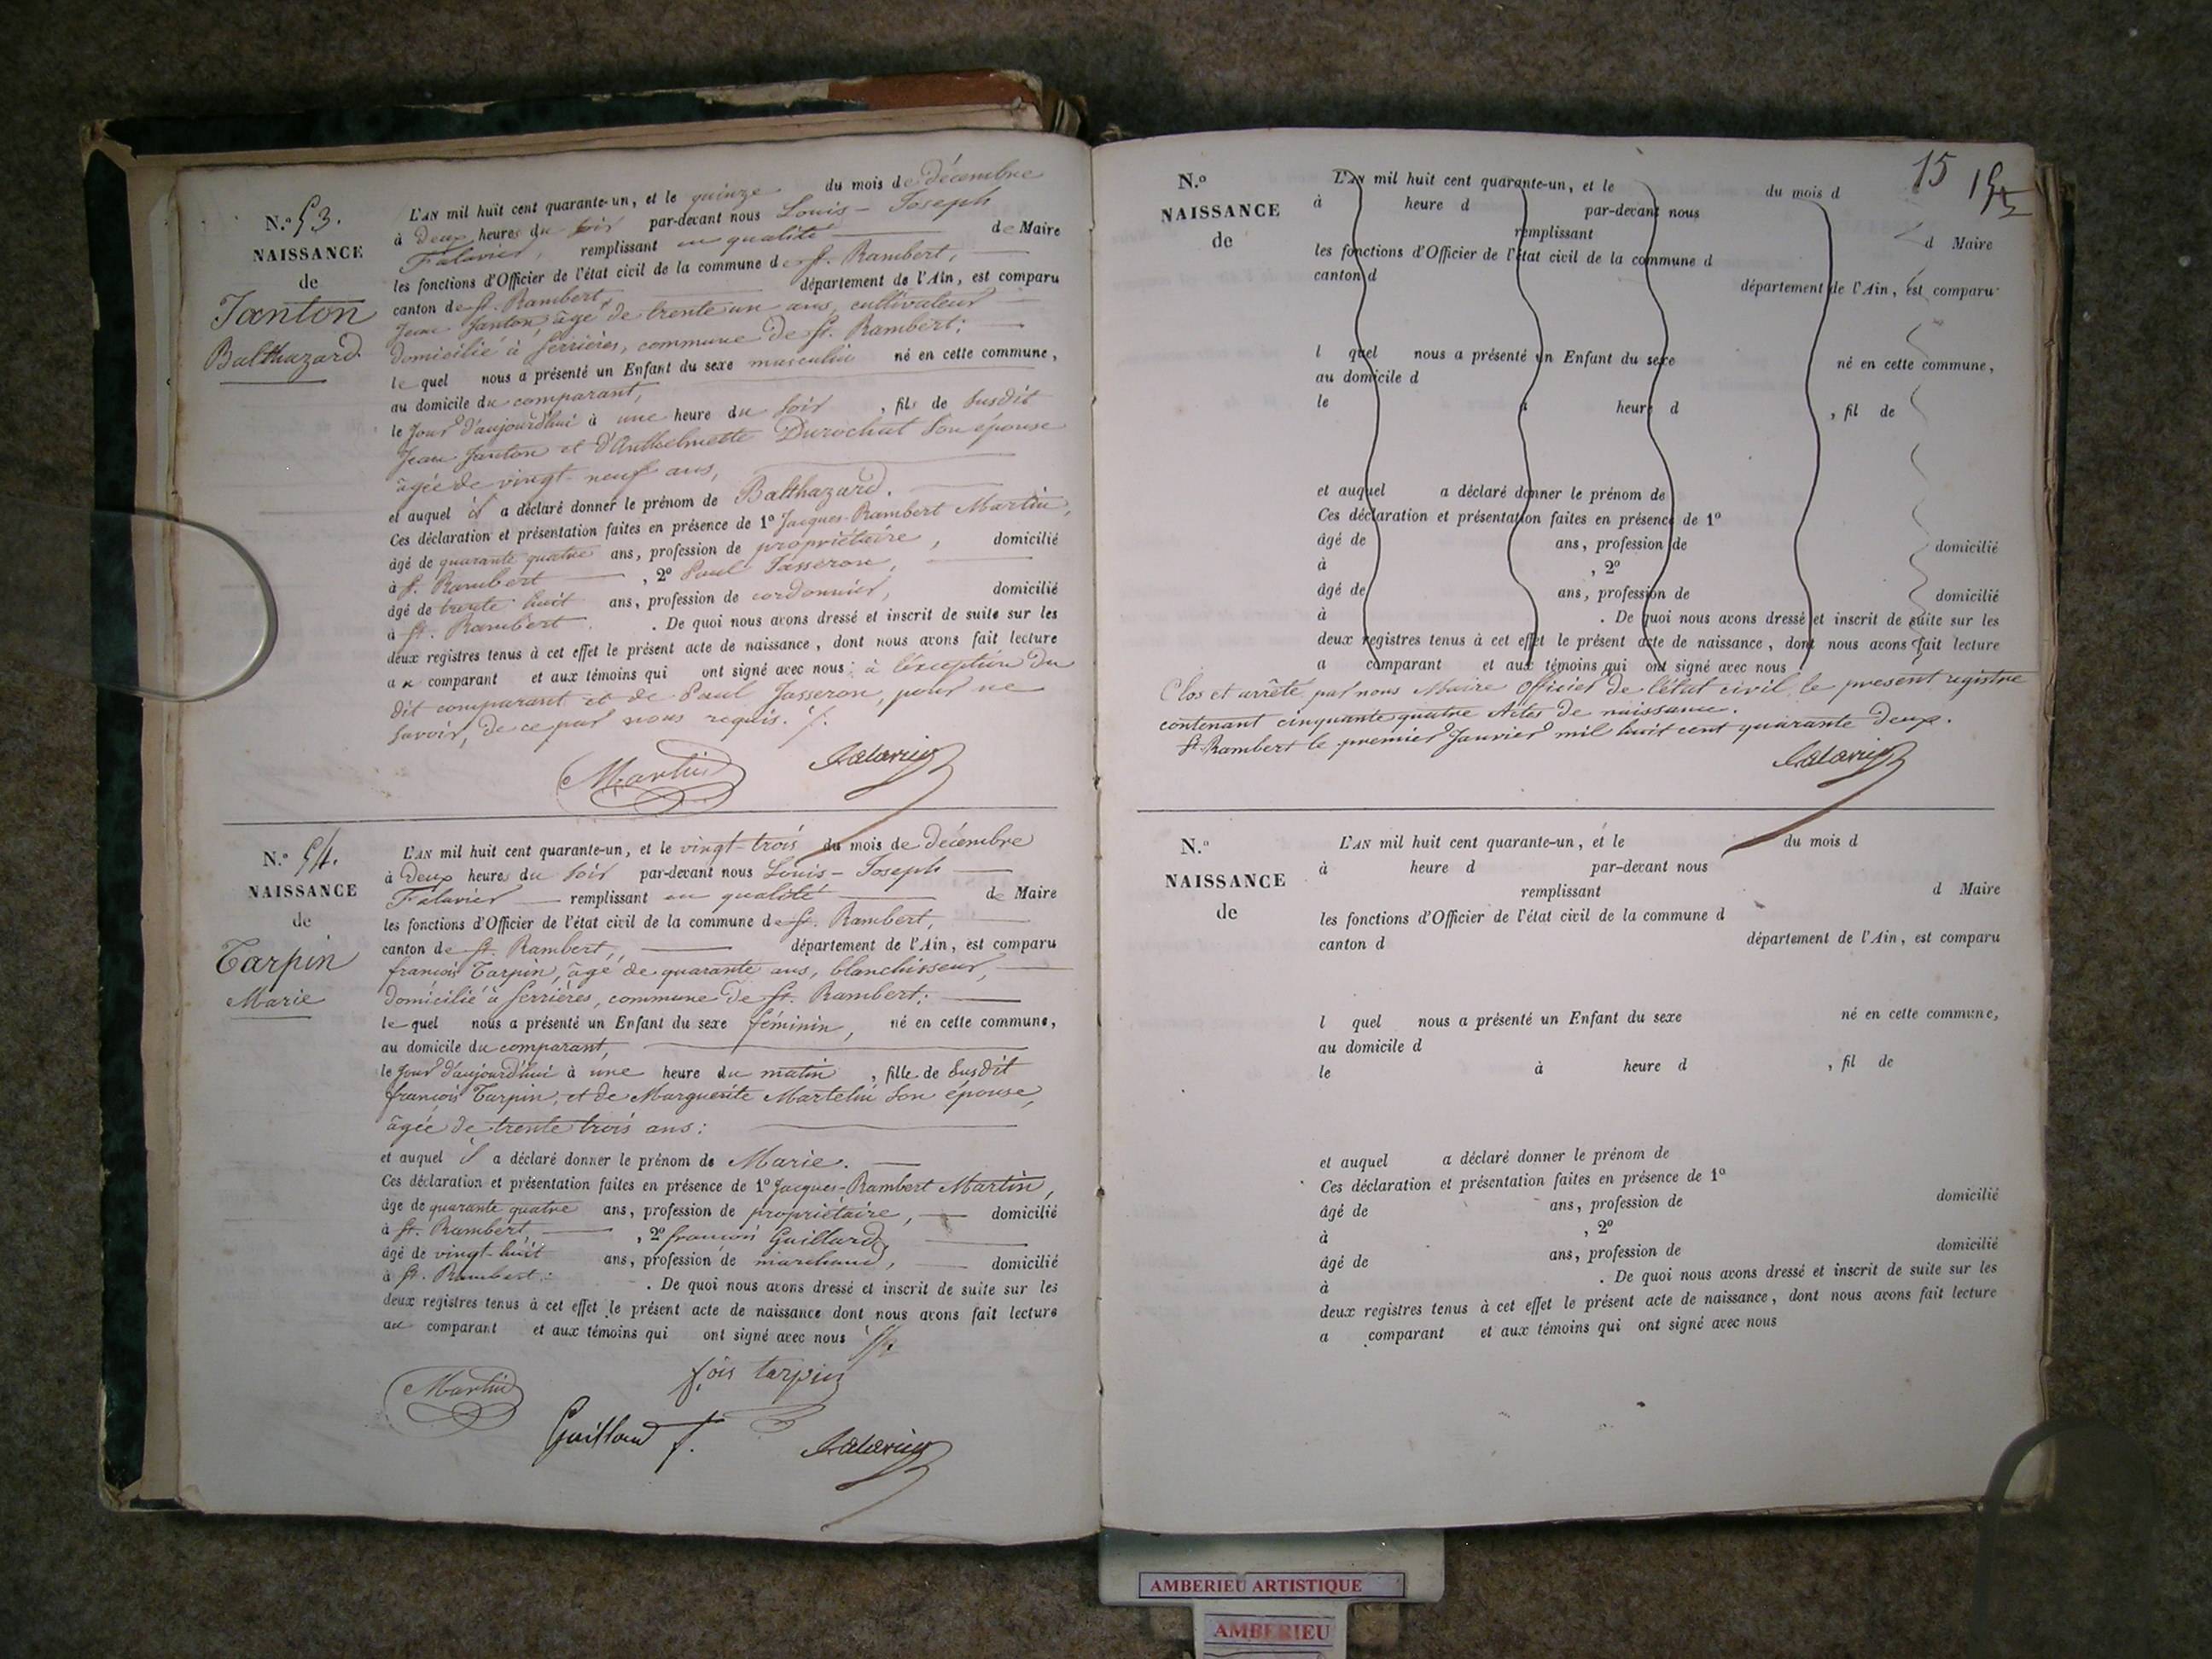 N.º 53.
NAISSANCE
de
Janton
Balthazard
L'AN mil huit cent quarante-un, et le quinze du mois de décembre
à deux heures du soir par-devant nous Louis-Joseph
Falavier, remplissant en qualité de Maire
les fonctions d'Officier de l'état civil de la commune de St. Rambert,
canton de St. Rambert, département de l'Ain, est comparu
Jean Janton, âgé de trente un ans, cultivateur
domicilié à Serrières, commune de St. Rambert;
lequel nous a présenté un Enfant du sexe masculin né en cette commune,
au domicile du comparant,
le jour d'aujourd'hui à une heure du soir, fils de susdit
Jean Janton et d'Anthelmette Durochat son épouse
âgée de vingt-neuf ans,
et auquel il a déclaré donner le prénom de Balthazard.
Ces déclaration et présentation faites en présence de 1º Jacques-Rambert Martin,
âgé de quarante quatre ans, profession de propriétaire, domicilié
à St. Rambert, 2º Paul Jasseron,
âgé de trente huit ans, profession de cordonnier, domicilié
à St. Rambert. De quoi nous avons dressé et inscrit de suite sur les
deux registres tenus à cet effet le présent acte de naissance, dont nous avons fait lecture
au comparant et aux témoins qui ont signé avec nous à l'exception du
dit comparant et de Paul Jasseron, pour ne
savoir, de ce par nous requis.
Martin Falavier
N.º 54.
NAISSANCE
de
Tarpin
Marie
L'AN mil huit cent quarante-un, et le vingt-trois du mois de décembre
à deux heures du soir par-devant nous Louis-Joseph
Falavier remplissant en qualité de Maire
les fonctions d'Officier de l'état civil de la commune de St. Rambert,
canton de St. Rambert, département de l'Ain, est comparu
françois Tarpin, âgé de quarante ans, blanchisseur,
domicilié à Serrières, commune de St. Rambert;
lequel nous a présenté un Enfant du sexe féminin, né en cette commune,
au domicile du comparant,
le jour d'aujourd'hui à une heure du matin, fille de susdit
françois Tarpin, et de Marguerite Martelin son épouse,
âgée de trente trois ans:
et auquel il a déclaré donner le prénom de Marie.
Ces déclaration et présentation faites en présence de 1º Jacques-Rambert Martin,
âgé de quarante quatre ans, profession de propriétaire, domicilié
à St. Rambert, 2º françois Guillard,
âgé de vingt-huit ans, profession de marchand, domicilié
à St. Rambert. De quoi nous avons dressé et inscrit de suite sur les
deux registres tenus à cet effet le présent acte de naissance dont nous avons fait lecture
au comparant et aux témoins qui ont signé avec nous
fois tarpin
Martin
Guillard f. Falavier
15
N.º
NAISSANCE
de
L'AN mil huit cent quarante-un, et le du mois d
à heure d par-devant nous
remplissant d Maire
les fonctions d'Officier de l'état civil de la commune d
canton d département de l'Ain, est comparu
l quel nous a présenté un Enfant du sexe né en cette commune,
au domicile d
le à heure d , fil de
et auquel a déclaré donner le prénom de
Ces déclaration et présentation faites en présence de 1º
âgé de ans, profession de domicilié
à , 2º
âgé de ans, profession de domicilié
à . De quoi nous avons dressé et inscrit de suite sur les
deux registres tenus à cet effet le présent acte de naissance, dont nous avons fait lecture
a comparant et aux témoins qui ont signé avec nous
Clos et arrêté par nous Maire officier de l'état civil, le présent registre
contenant cinquante quatre Actes de naissance.
St. Rambert le premier Janvier mil huit cent quarante deux.
Falavier
N.º
NAISSANCE
de
L'AN mil huit cent quarante-un, et le du mois d
à heure d par-devant nous
remplissant d Maire
les fonctions d'Officier de l'état civil de la commune d
canton d département de l'Ain, est comparu
l quel nous a présenté un Enfant du sexe né en cette commune,
au domicile d
le à heure d , fil de
et auquel a déclaré donner le prénom de
Ces déclaration et présentation faites en présence de 1º
âgé de ans, profession de domicilié
à , 2º
âgé de ans, profession de domicilié
à . De quoi nous avons dressé et inscrit de suite sur les
deux registres tenus à cet effet le présent acte de naissance, dont nous avons fait lecture
a comparant et aux témoins qui ont signé avec nous
AMBERIEU ARTISTIQUE
AMBERIEU